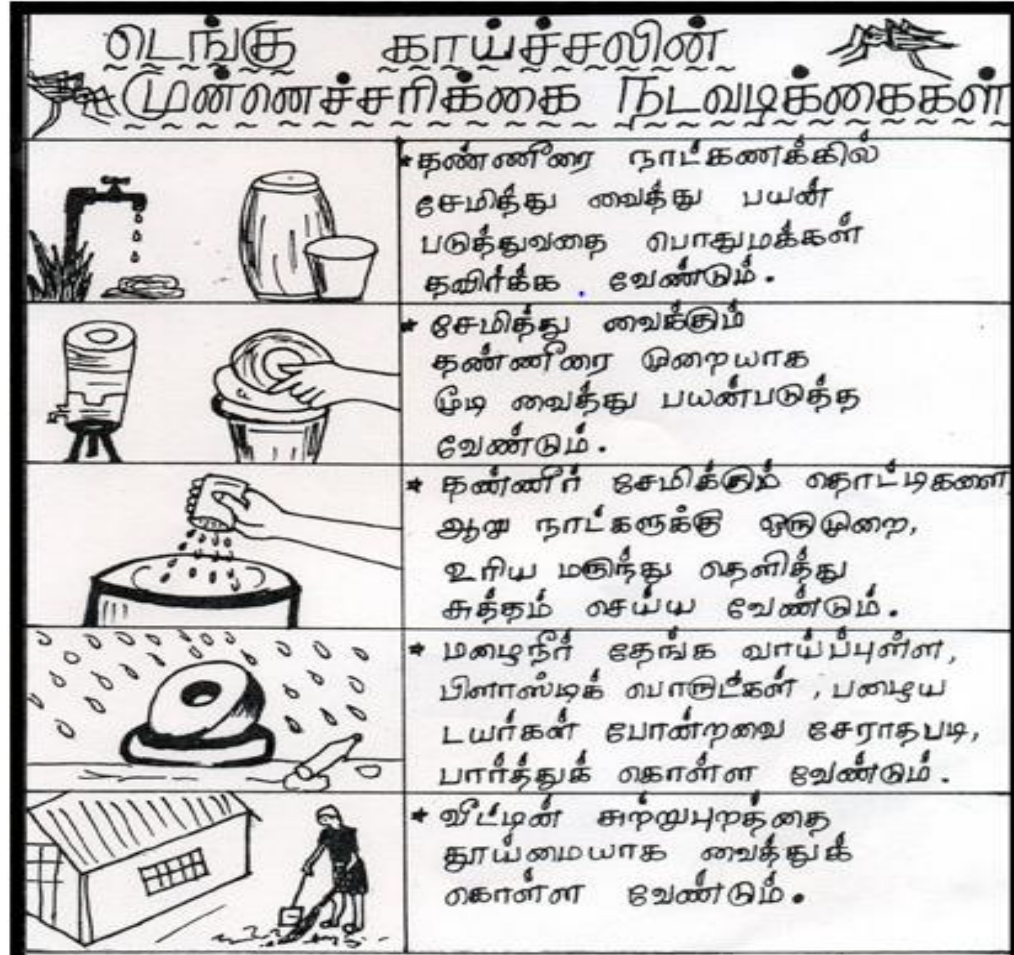 டெங்கு காய்ச்சலின்
முன்னெச்சரிக்கை நடவடிக்கைகள்
* தண்ணீரை நாட்கணக்கில்
சேமித்து வைத்து பயன்
படுத்துவதை பொதுமக்கள்
தவிர்க்க வேண்டும்.
* சேமித்து வைக்கும்
தண்ணீரை முறையாக
மூடி வைத்து பயன்படுத்த
வேண்டும்.
* தண்ணீர் சேமிக்கும் தொட்டிகளை
ஆறு நாட்களுக்கு ஒருமுறை,
உரிய மருந்து தெளித்து
சுத்தம் செய்ய வேண்டும்.
* மழைநீர் தேங்க வாய்ப்புள்ள,
பிளாஸ்டிக் பொருட்கள், பழைய
டயர்கள் போன்றவை சேராதபடி,
பார்த்துக் கொள்ள வேண்டும்.
* வீட்டின் சுற்றுபுறத்தை
தூய்மையாக வைத்துக்
கொள்ள வேண்டும்.